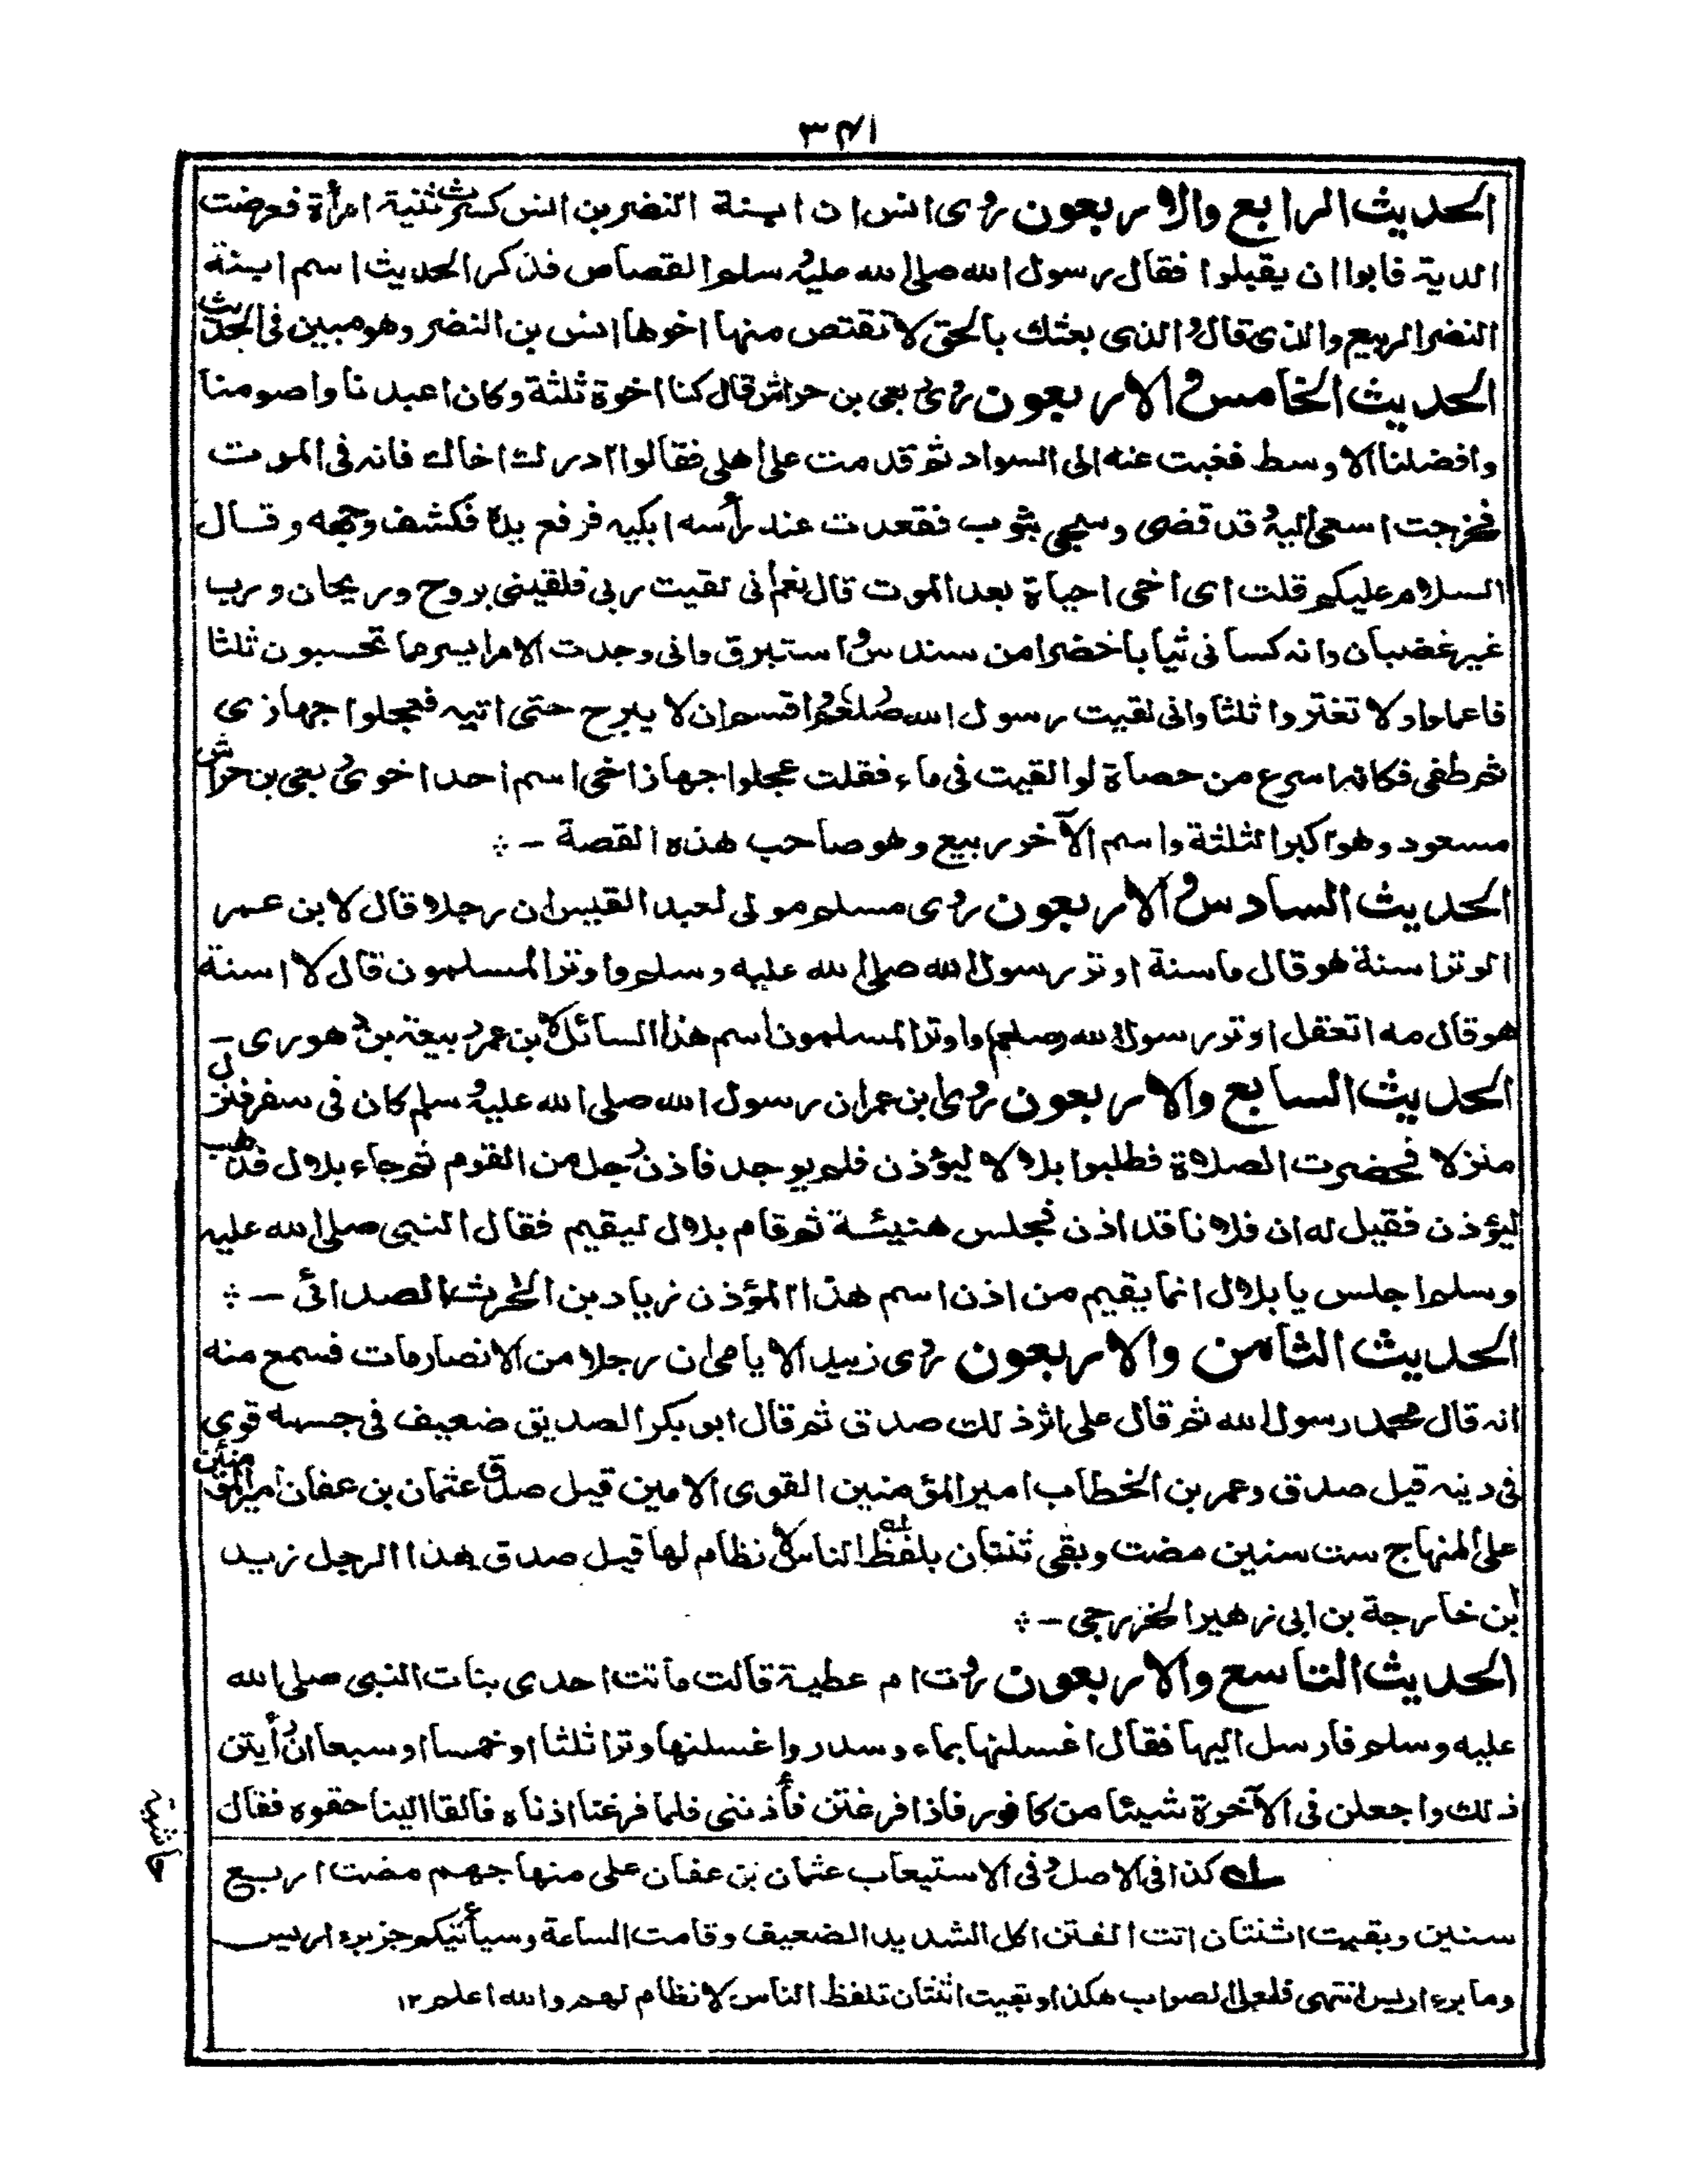 ٣٤١
الحديث الرابع والاربعون روى انس ان ابنة النضر بن انس كسرت ثنية امرأة فعرضت
الدية فابوا ان يقبلوا فقال رسول الله صلى الله عليه وسلم القصاص فذكر الحديث اسم ابنة
النضر الربيع والذي قال والذي بعثك بالحق لا تقتص منها اخوها انس بن النضر وهو مبين في الحديث
الحديث الخامس والاربعون روى ربعى بن حراش قال كنا اخوة ثلثة وكان اعبدنا واصومنا
وافضلنا الاوسط فغبت عنه الى السواد ثم قدمت على اهلى فقالوا ادرك اخاك فانه فى الموت
فخرجت اسعى اليه وقد قضى وسجى بثوب فقعدت عند رأسه ابكيه فرفع يده فكشف وجهه وقال
السلام عليكم قلت اى اخى احياة بعد الموت قال نعم انى لقيت ربى فلقينى بروح وريحان ورب
غير غضبان وانه كسانى ثيابا خضرا من سندس واستبرق وانى وجدت الامر ايسر مما تحسبون ثلثا
فاعملوا ولا تغتروا ثلثا وانى لقيت رسول الله صلعم واقسم ان لا يبرح حتى اتيه فعجلوا جهازى
ثم طفى فكانه اسرع من حصاة لو القيت فى ماء فقلت عجلوا جهاز اخى اسم احد اخوى ربعى بن حراش
مسعود وهو اكبر الثلثة واسم الآخر ربيع وهو صاحب هذه القصة -
الحديث السادس والاربعون روى مسلم مولى لعبد القيس ان رجلا قال لابن عمر
الوتر اسنة هو قال ما سنة اوتر رسول الله صلى الله عليه وسلم واوتر المسلمون قال لا اسنة
هو قال مه اتعقل اوتر رسول الله صلعم واوتر المسلمون اسم هذا السائل لابن عمر ربيعة بن هورى -
الحديث السابع والاربعون روى ابن عمر ان رسول الله صلى الله عليه وسلم كان فى سفر فنزل
منزلا فحضرت الصلاة فطلبوا بلالا ليؤذن فلم يوجد فاذن رجل من القوم ثم جاء بلال فذهب
ليؤذن فقيل له ان فلانا قد اذن فجلس هنيئة ثم قام بلال ليقيم فقال النبى صلى الله عليه
وسلم اجلس يا بلال انما يقيم من اذن اسم هذا المؤذن زياد بن الحرث الصدائى -
الحديث الثامن والاربعون روى زبيد الايامى ان رجلا من الانصار مات فسمع منه
انه قال محمد رسول الله ثم قال على اثر ذلك صدق ثم قال ابو بكر الصديق ضعيف فى جسمه قوى
فى دينه قيل صدق وعمر بن الخطاب امير المؤمنين القوى الامين قيل صدق عثمان بن عفان امير المؤمنين
على المنهاج ست سنين مضت وبقى ثنتان بلفظ الناس لا نظام لها قيل صدق هذا الرجل زيد
ابن خارجة بن ابى زهير الخزرجى -
الحديث التاسع والاربعون روت ام عطية قالت ماتت احدى بنات النبى صلى الله
عليه وسلم فارسل اليها فقال اغسلنها بماء وسدر واغسلنها وترا ثلثا او خمسا او سبعا ان رأيتن
ذلك واجعلن فى الآخرة شيئا من كافور فاذا فرغتن فأذننى فلما فرغنا اذناه فالقا الينا حقوه فقال
له كذا فى الاصل وفى الاستيعاب عثمان بن عفان على منهاجهم مضت اربع
سنين وبقيت اثنتان اتت الفتن اكل الشديد الضعيف وقامت الساعة وسيأتيكم خبر بير اريس
وما بير اريس انتهى فلعل الصواب هكذا وبقيت اثنتان تلفظ الناس لا نظام لهم والله اعلم ١٢